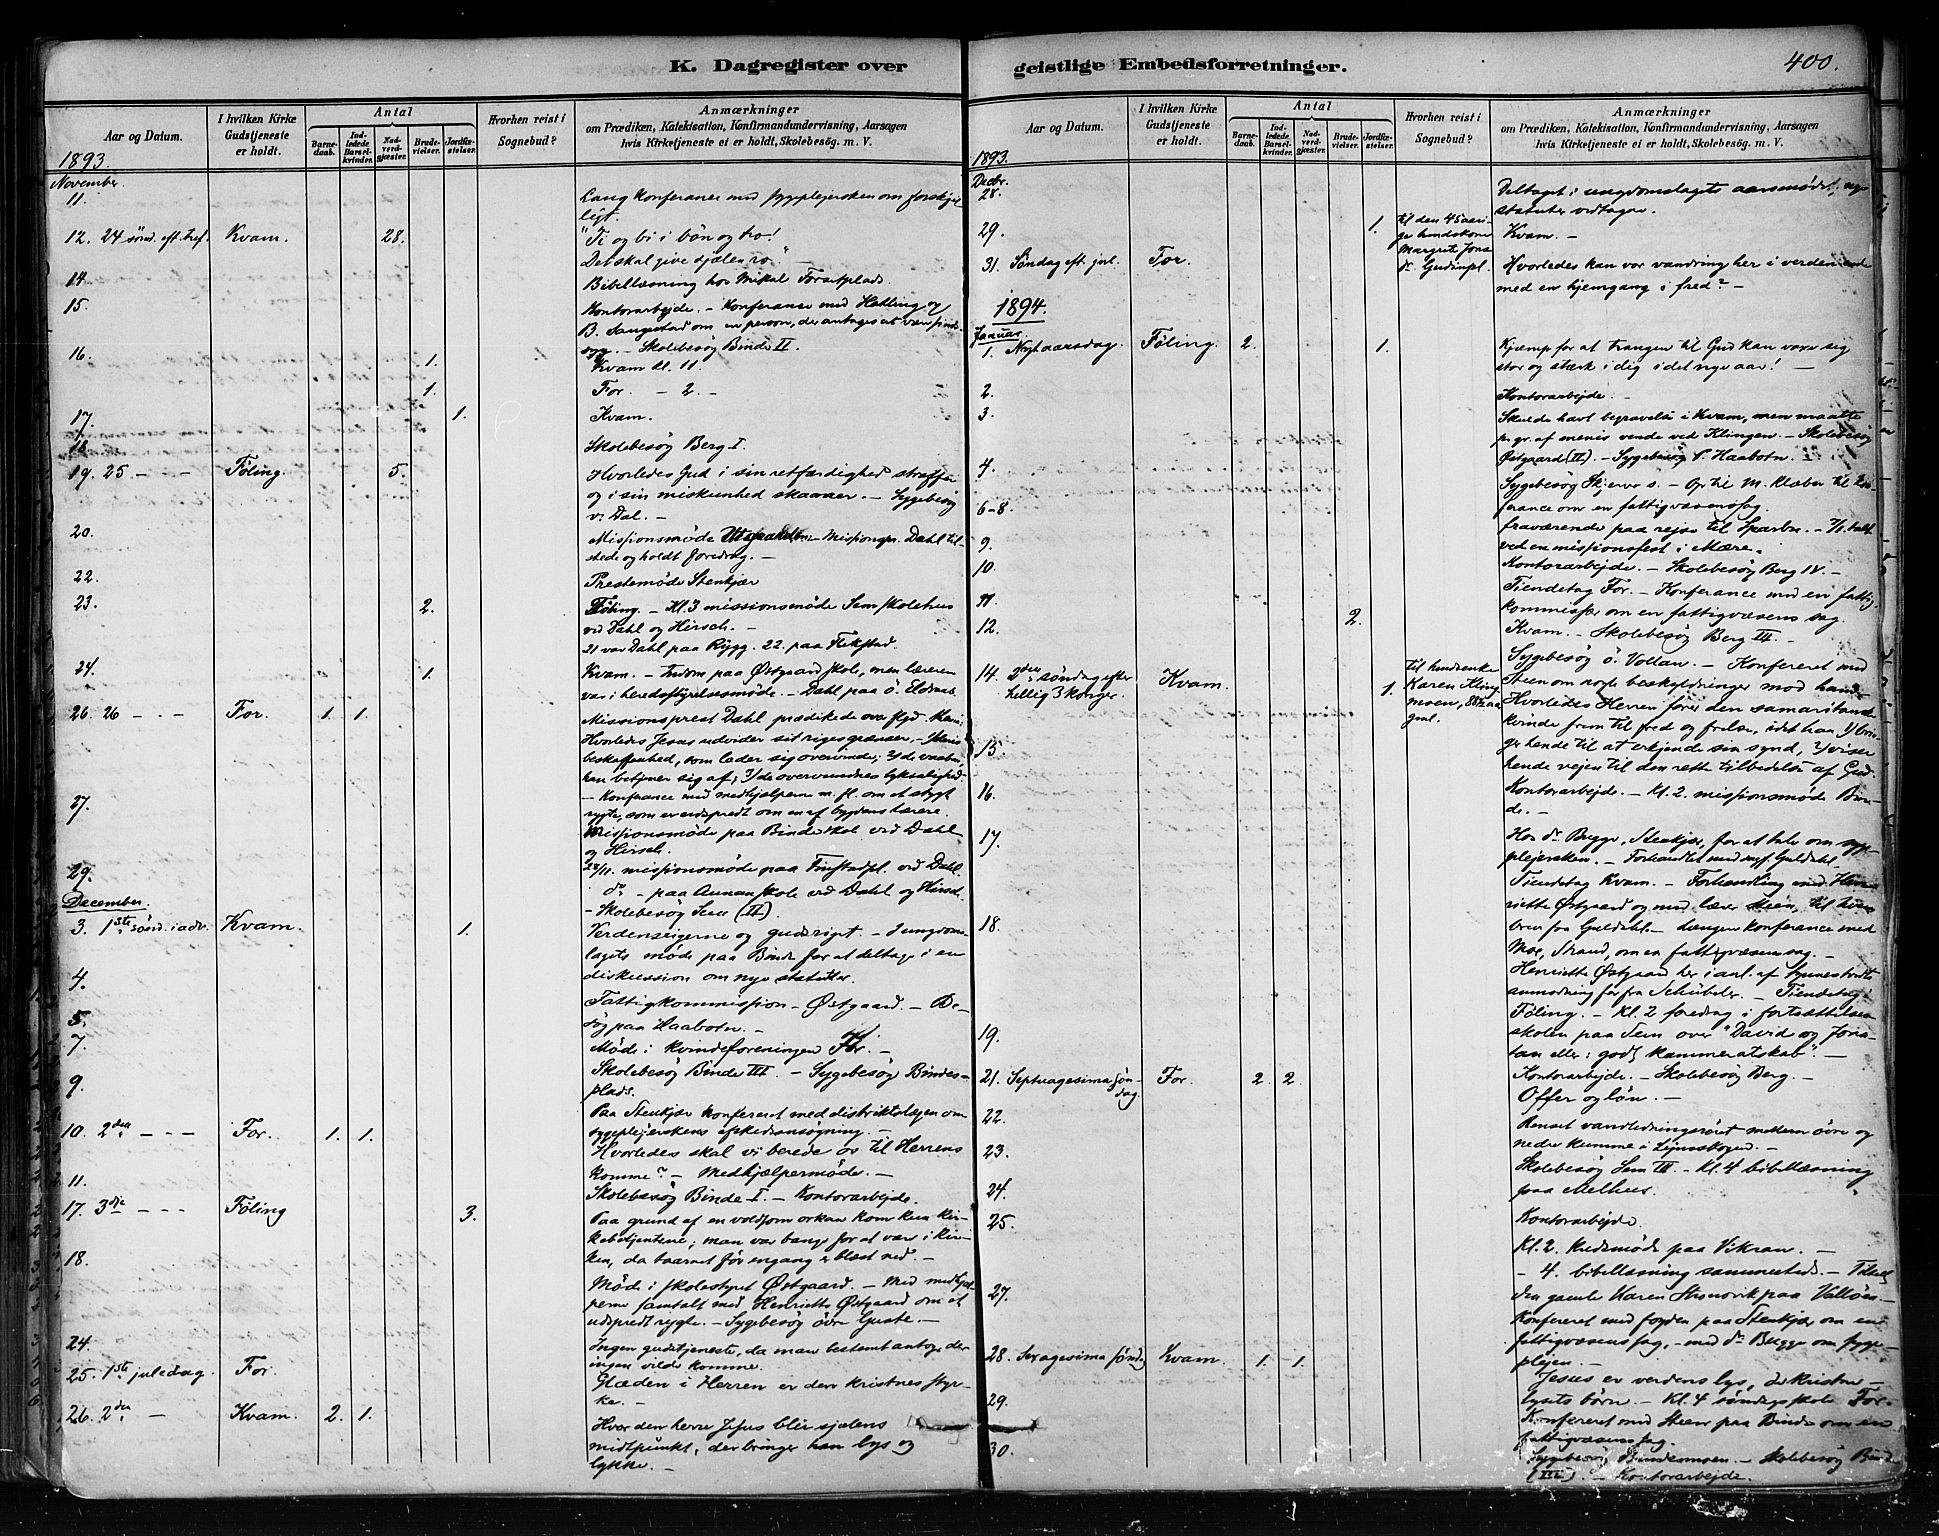 K. Dagregister over
Aar og Datum.
I hvilken Kirke Gudstjeneste er holdt.
Antal
Barnedaab.
Indledede Barselkvinder.
Nadverdgjester.
Brudevielser.
Jordfæstelser.
Hvorhen reist i Sognebud?
Anmærkninger
om Prædiken, Katekisation, Konfirmandundervisning, Aarsagen
hvis Kirketjeneste ei er holdt, Skolebesøg. m. V.
1893.
November.
11. Lang konferance med sygeplejersken om forskjel-
ligt.
12. 24 sønd. eft. tref. Kvam. 28. "Ti og bi i bön og tro!
Det skal give sjælen ro." -
14. Bibellæsning hos Mikal Forsetplads.
15. Kontorarbejde. - Konferanse med Hatling og
B. Saugestad om en person, der antages at være sinds-
syg. - Skolebesøg Binde II.
16. 1. Kvam kl. 11.
1. For. - 2. -
17. 1. Kvam.
18. Skolebesøg Berg I.
19. 25 - - - Föling. 5. Hvorledes Gud i sin retfærdighed straffer
og i sin miskunhed skaaner. - Sygebesøg
v. Dal. -
20. Missionsmöde - Missionspr. Dahl til-
stede og holdt foredrag. -
22. Prestemöde Stenkjær
23. 2. Föling. - Kl. 3 missionsmöde Sem skolehus
ved Dahl og Hirsch. -
21 var Dahl paa Rygg. 22. paa Fikstad.
24. 1. Kvam. - Indom paa Østgaard skole, men læreren
var i herredsstyrelsesmöde. - Dahl paa ö.
26. 26 - - - For. 1. 1. Missionsprest Dahl prædikede over
Hvorledes Jesus udvider sit riges grænser. -
beskaffenhed, som lader sig overvinde; 2/ de vaaben,
han betjener sig af; 3/ de overvundnes lyksalighed.
27. - Konferance med medhjælperne m. fl. om et stygt
rygte, som er udspredt om en af bygdens lærere.
Missionsmöde paa Binde skol. ved Dahl
og Hirsch.
29. missionsmöde paa ved Dahl.
do - paa Aunan skole ved Dahl og Hirsch.
- Skolebesøg Sem (II).
December.
3. 1ste sönd. i adv. Kvam. 1. Verdenseierne og gudsrigt. - Ungdoms-
lagets möde paa Binde for at deltage i en
diskussion om nye statutter.
4. Fattigkommission - Østgaard. - Be-
søg paa Haabotn. -
5. Möde i kvindeforeningen For. -
7. Skolebesøg Binde III. - Sygebesøg Bindes-
plads.
9. Paa Stenkjær konfereret med distriktslægen om
sygeplejerskens afskedsansøgning. -
10. 2den - - - For. 1. 1. Hvorledes skal vi berede os til Herrens
komme? - Medhjælpermöde. -
11. Skolebesøg Binde I. - Kontorarbejde.
17. 3dje - - - Föling 3. Paa grund af en voldsom orkan kom kun kir-
kebetjentene; man var bange for at være i kir-
ken, da taarnet før engang er blæst ned. -
18. Möde i skolestyret Østgaard. - Med medhjæl-
perne samtalt med Henriette Østgaard om et
udspredt rygte. - Sygebesøg övre Guste. -
24. Ingen gudstjeneste, da man bestemt antog, der
ingen vilde komme.
25. 1ste juledag. For. Glæden i Herren er den kristnes styr-
ke. -
26. 2den - Kvam. 2. 1. Hvor den herre Jesus blir sjælens
midtpunkt, der bringer han lys og
lykke. -
geistlige Embedsforretninger.
400.
Aar og Datum.
I hvilken Kirke Gudstjeneste er holdt.
Antal
Barnedaab.
Indledede Barselkvinder.
Nadverdgjester.
Brudevielser.
Jordfæstelser.
Hvorhen reist i Sognebud?
Anmærkninger
om Prædiken, Katekisation, Konfirmandundervisning, Aarsagen
hvis Kirketjeneste ei er holdt, Skolebesøg. m. V.
1893.
Decbr.
28. Deltaget i ungdomslagets aarsmöde;
statuter vedtages.
29. 1. til den 45 aari-
ge huuskone
Margrete Jons
dr. Gudinpl. Kvam. -
31. Søndag eft. jul. For. Hvorledes kan vor vandring her i verden ende
med en hjemgang i fred? -
1894.
Januar.
1. Nytaarsdag. Föling. 2. 1. Kjæmp for at trangen til Gud kan voxe sig
stor og stærk i dig i det nye aar! -
2. Kontorarbejde.
3. Skulde havt begravelse i Kvam, men maatte
p. gr. af menis vende ved Klingen. - Skolebesøg
Østgaard (II). - Sygebesøg p. Haabotn.
4. Sygebesøg Skjerve s. - Op til M. Klæber til kon-
ferance om en fattigvæsenssag.
6-8 fraværende paa rejse til Sparbu. - 7/1 talt
ved en missionsfest i Mære.
9. Kontorarbejde. - Skolebesøg Berg IV. -
10. Tiendetag For. - Konferance med en fattig-
kommissær om en fattigvæsens sag.
11.
12. 2. Kvam. - Skolebesøg Berg III. -
Sygebesøg ö. Vollan. - Konfereret med
Steen om nogle beskyldninger mod ham.
14. 2den søndag efter
hellig 3 konger. Kvam. 1. til huusenke
Karen Kling
moen, 88½ aar
gml. Hvorledes Herren fører den samaritanske
kvinde frem til fred og frelse, idet han 1/ brin-
ger hende til at erkjende sin synd, 2/ viser
hende vejen til den rette tilbedelse af Gud.
15. Kontorarbejde. - Kl. 2. missionsmöde Bin-
de. -
16. Hos dr Bugge, Stenkjær, for at tale om syge-
plejersken. - Forhandlet med Guldahl.
17. Tiendetag Kvam. - Forhandling med Hen-
riette Østgaard og med lærer Steen, til hvem
brev fra Guldahl. - Længere konferance med
Moe, Strand, om en fattigvæsenssag. -
18. Henriette Østgaard her i anl. af
anmodning fra Schübeler. - Tiendetag i
Föling. - Kl. 2 foredrag i fortsættelses-
19. skolen paa Sem over "David og Jona-
tan eller: godt kammeratskab". -
Kontorarbejde. - Skolebesøg Berg. -
21. Septuagesima søn-
dag For. 2. 2. Offer og løn. -
22. Renset vandledningsröret mellem övre og
nedre kumme i
23. Skolebesøg Sem III. - Kl. 4 bibellæsning
paa Melhus.
24. Kontorarbejde.
25. Kl. 2. Kredsmöde paa Vikran. -
- 4. bibellæsning sammesteds. - Tilseet
den gamle Karen paa
27. Konfereret med fogden paa Stenkjær om en
fattigvæsenssag, - med dr Bugge om syge-
plejen. -
28. Sexagesima sønd. Kvam. 1. 1. Jesus er verdens lys, de kristne -
lysets börn. - Kl. 4 søndagsskole For.
29. Konfereret med Steen paa Binde om en
fattigvæsenssag.
30. Sygebesøg Bindesmoen. - Skolebesøg Binde
(III). - Kontorarbejde.